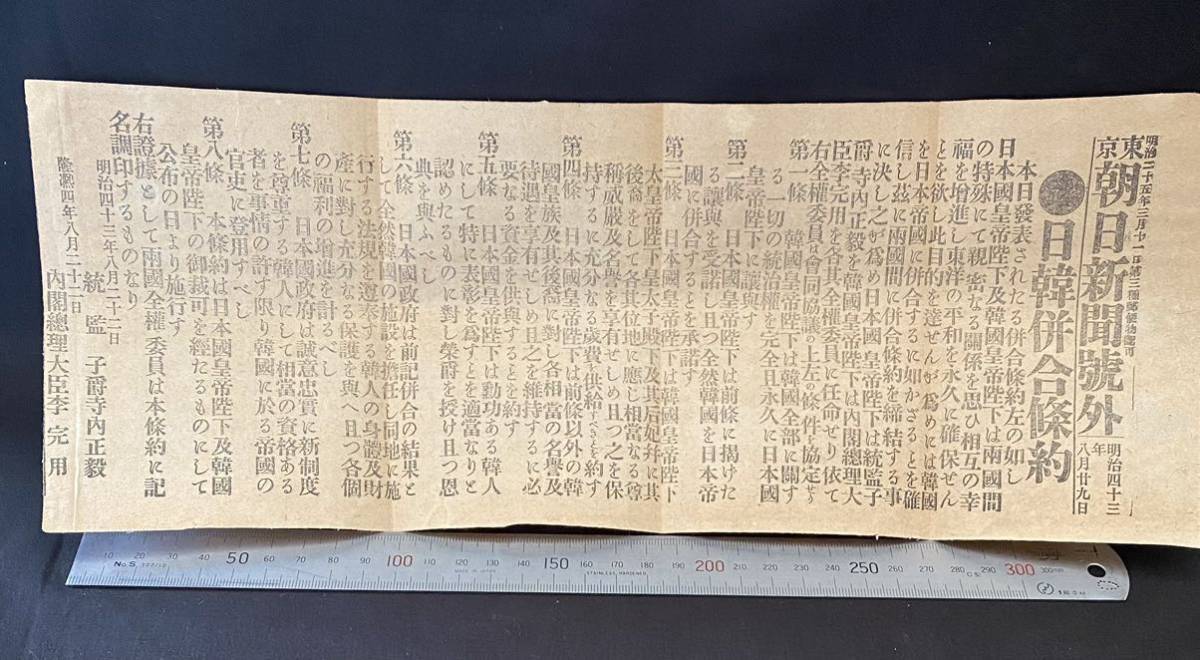 明治二十五年三月十一日第三種郵便物認可
東京朝日新聞號外
明治四十三年八月廿九日
日韓併合條約
本日發表されたる併合條約左の如し
日本國皇帝陛下及韓國皇帝陛下は兩國間
の特殊にして親密なる關係を思ひ相互の幸
福を增進し東洋の平和を永久に確保せん
とを欲し此目的を達せんが爲めには韓國
を日本帝國に併合するに如かざることを確
信し茲に兩國間に併合條約を締結する事
に決し之が爲め日本國皇帝陛下は統監子
爵寺內正毅を韓國皇帝陛下は內閣總理大
臣李完用を各其全權委員に任命せり依て
右全權委員は會同協議の上左の條件を協定せり
第一條 韓國皇帝陛下は韓國全部に關す
る一切の統治權を完全且永久に日本國
皇帝陛下に讓與す
第二條 日本國皇帝陛下は前條に揭けた
る讓與を受諾し且つ全然韓國を日本帝
國に併合することを承諾す
第三條 日本國皇帝陛下は韓國皇帝陛下
太皇帝陛下皇太子殿下及其后妃幷に其
後裔をして各其位地に應じ相當なる尊
稱威嚴及名譽を享有せしめ且つ之を保
持するに充分なる歲費を供給すべきを約す
第四條 日本國皇帝陛下は前條以外の韓
國皇族及其後裔に對し各相當の名譽及
待遇を享有せしめ且之を維持するに必
要なる資金を供與することを約す
第五條 日本國皇帝陛下は勳功ある韓人
にして特に表彰を爲すとを適當なりと
認めたるものに對し榮爵を授け且つ恩
典を與ふべし
第六條 日本國政府は前記併合の結果と
して全然韓國の施設を擔任し同地に施
行する法規を遵奉する韓人の身體及財
產に對し充分なる保護を與へ且つ各個
の福利の增進を計るべし
第七條 日本國政府は誠意忠實に新制度
を尊重する韓人にして相當の資格ある
者を事情の許す限り韓國に於る帝國の
官吏に登用すべし
第八條 本條約は日本國皇帝陛下及韓國
皇帝陛下の御裁可を經たるものにして
公布の日より施行す
右證據として兩國全權委員は本條約に記
名調印するものなり
明治四十三年八月二十二日
統監 子爵寺內正毅
隆熙四年八月二十二日
內閣總理大臣李完用
10 20 30 40 50 60 70 80 90 100 110 120 130 140 150 160 170 180 190 200 210 220 230 240 250 260 270 280 290 300
No.5
MADE IN JAPAN
STAINLESS HARDENED